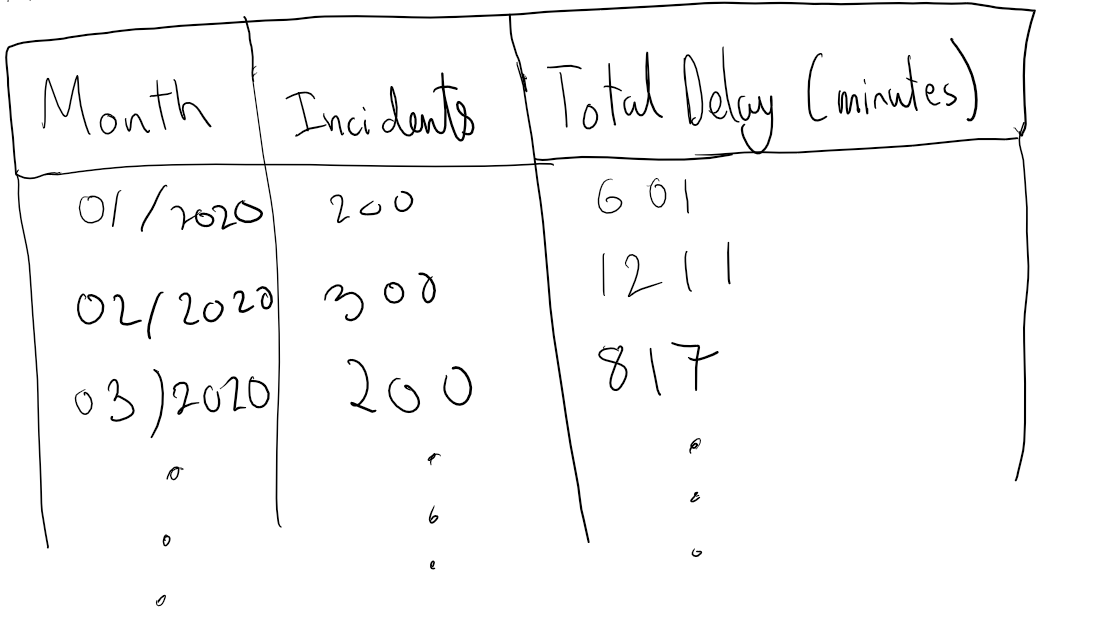 Month Incidents Total Delay (minutes)
01/2020 200 601
02/2020 300 1211
03/2020 200 817
. . .
. . .
. . .